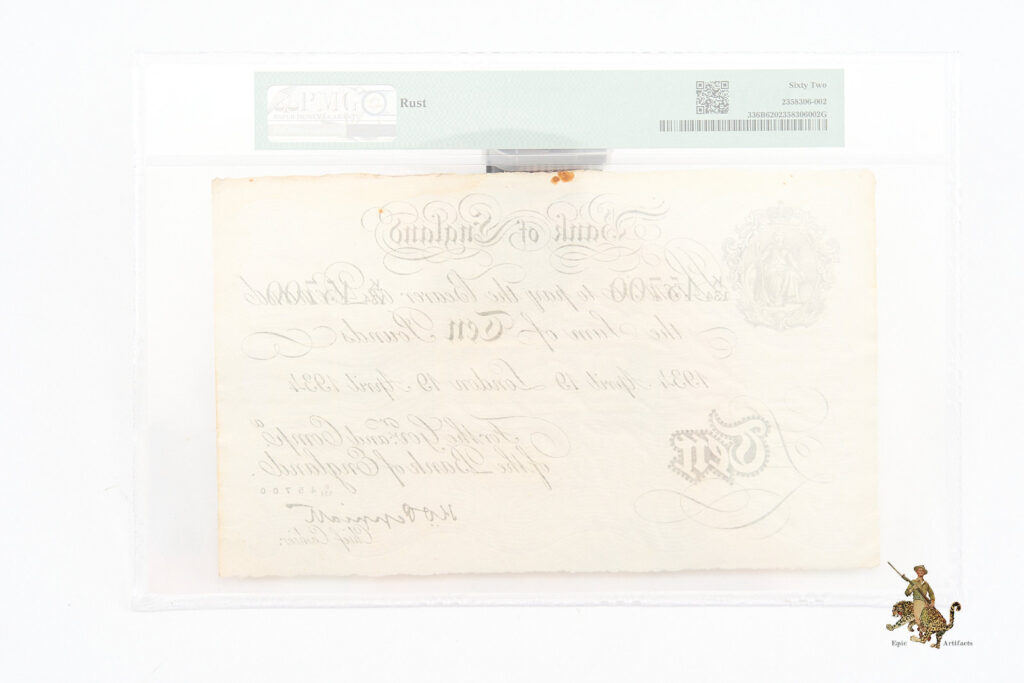 PMG
Rust
Sixty Two
2358306-002
336B6202358306002G
Bank of England
to pay the Bearer
the Sum of Ten Pounds
1934 April 19 London 19 April 1934
For the Govr. and Compa.
of the Bank of England.
Ten
45700
K.O. Peppiatt
Chief Cashier.
Epic Artifacts